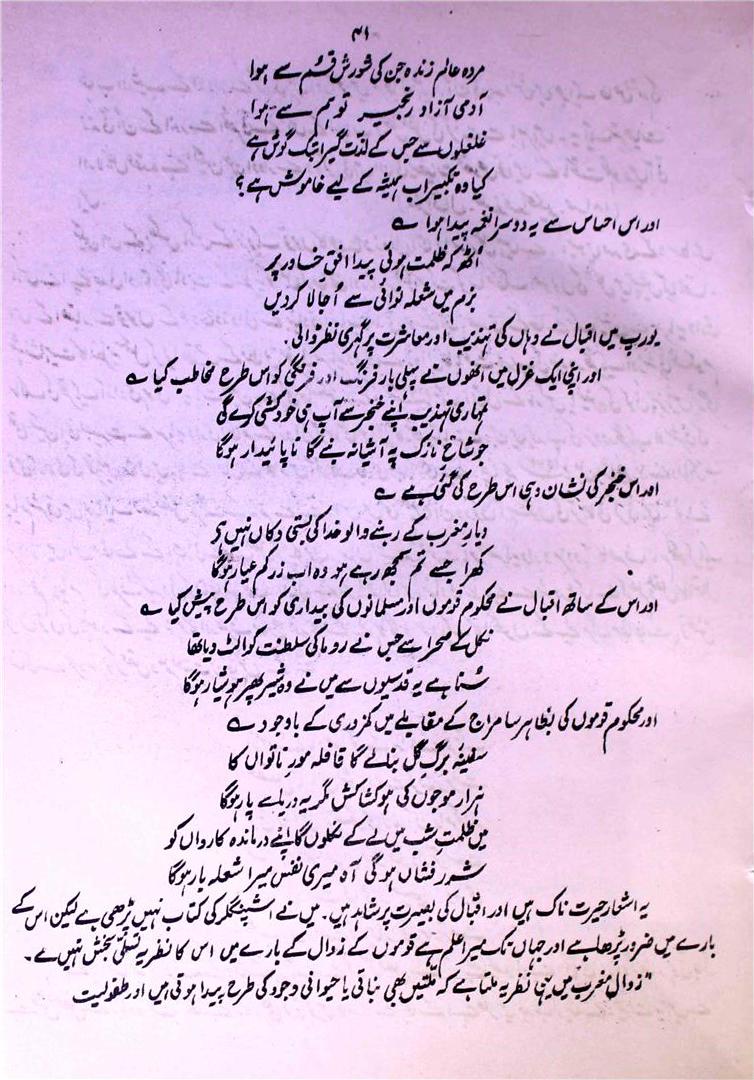 ۴۱
مردہ عالم زندہ جن کی شورش قُم سے ہوا
آدمی آزاد زنجیر توہم سے ہوا
غلغلوں سے جس کے لذت گیر ابتک گوش ہے
کیا وہ تکبیر اب ہمیشہ کے لیے خاموش ہے؟
اور اس احساس سے یہ دوسرا نغمہ پیدا ہوا ؎
اُٹھ کہ ظلمت ہوئی پیدا افقِ خاور پر
بزم میں شعلہ نوائی سے اُجالا کر دیں
یورپ میں اقبال نے وہاں کی تہذیب اور معاشرت پر گہری نظر ڈالی۔
اور اپنی ایک غزل میں انھوں نے پہلی بار فرنگ اور فرنگی کو اس طرح مخاطب کیا ؎
تمہاری تہذیب اپنے خنجر سے آپ ہی خودکشی کرے گی
جو شاخِ نازک پہ آشیانہ بنے گا ناپائیدار ہوگا
اور اس خنجر کی نشان دہی اس طرح کی گئی ہے ؎
دیارِ مغرب کے رہنے والو خدا کی بستی دکاں نہیں ہے
کھرا جسے تم سمجھ رہے ہو وہ اب زر کم عیار ہوگا
اور اس کے ساتھ اقبال نے محکوم قوموں اور مسلمانوں کی بیداری کو اس طرح پیش کیا ؎
نکل کے صحرا سے جس نے روما کی سلطنت کو الٹ دیا تھا
سُنا ہے یہ قدسیوں سے میں نے وہ شیر پھر ہوشیار ہوگا
اور محکوم قوموں کی بظاہر سامراج کے مقابلے میں کمزوری کے باوجود ؎
سفینۂ برگِ گل بنالے گا قافلہ مورِ ناتواں کا
ہزار موجوں کی ہو کشاکش مگر یہ دریا سے پار ہوگا
میں ظلمتِ شب میں لے کے نکلوں گا اپنے درماندہ کارواں کو
شررفشاں ہوگی آہ میری نفس میرا شعلہ بار ہوگا
یہ اشعار حیرت ناک ہیں اور اقبال کی بصیرت پر شاہد ہیں۔ میں نے اشپنگلر کی کتاب نہیں پڑھی ہے لیکن اس کے
بارے میں ضرور پڑھا ہے اور جہاں تک میرا علم ہے قوموں کے زوال کے بارے میں اس کا نظریہ تسلّی بخش نہیں ہے۔
"زوالِ مغرب میں یہی نظریہ ملتا ہے کہ ملتیں بھی نباتی یا حیوانی وجود کی طرح پیدا ہوتی ہیں اور طفولیت